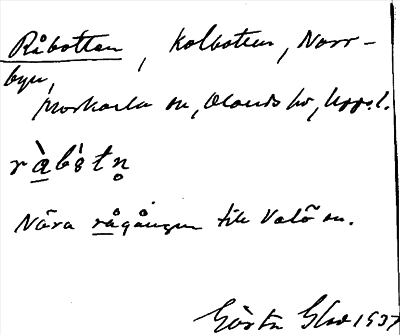 Råbotten, Kolbotten, Norr-
byn,
Morkarla sn, Olands hd, Uppl.
ràbòtn̥
Nära rågången till Valö sn.
Gösta 1937